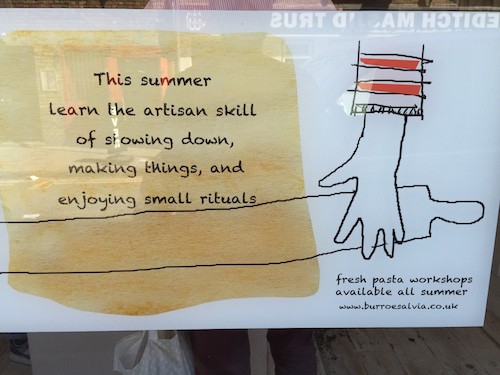 EDITCH MA ND TRUS
This summer
learn the artisan skill
of slowing down,
making things, and
enjoying small rituals
fresh pasta workshops
available all summer
www.burroesalvia.co.uk